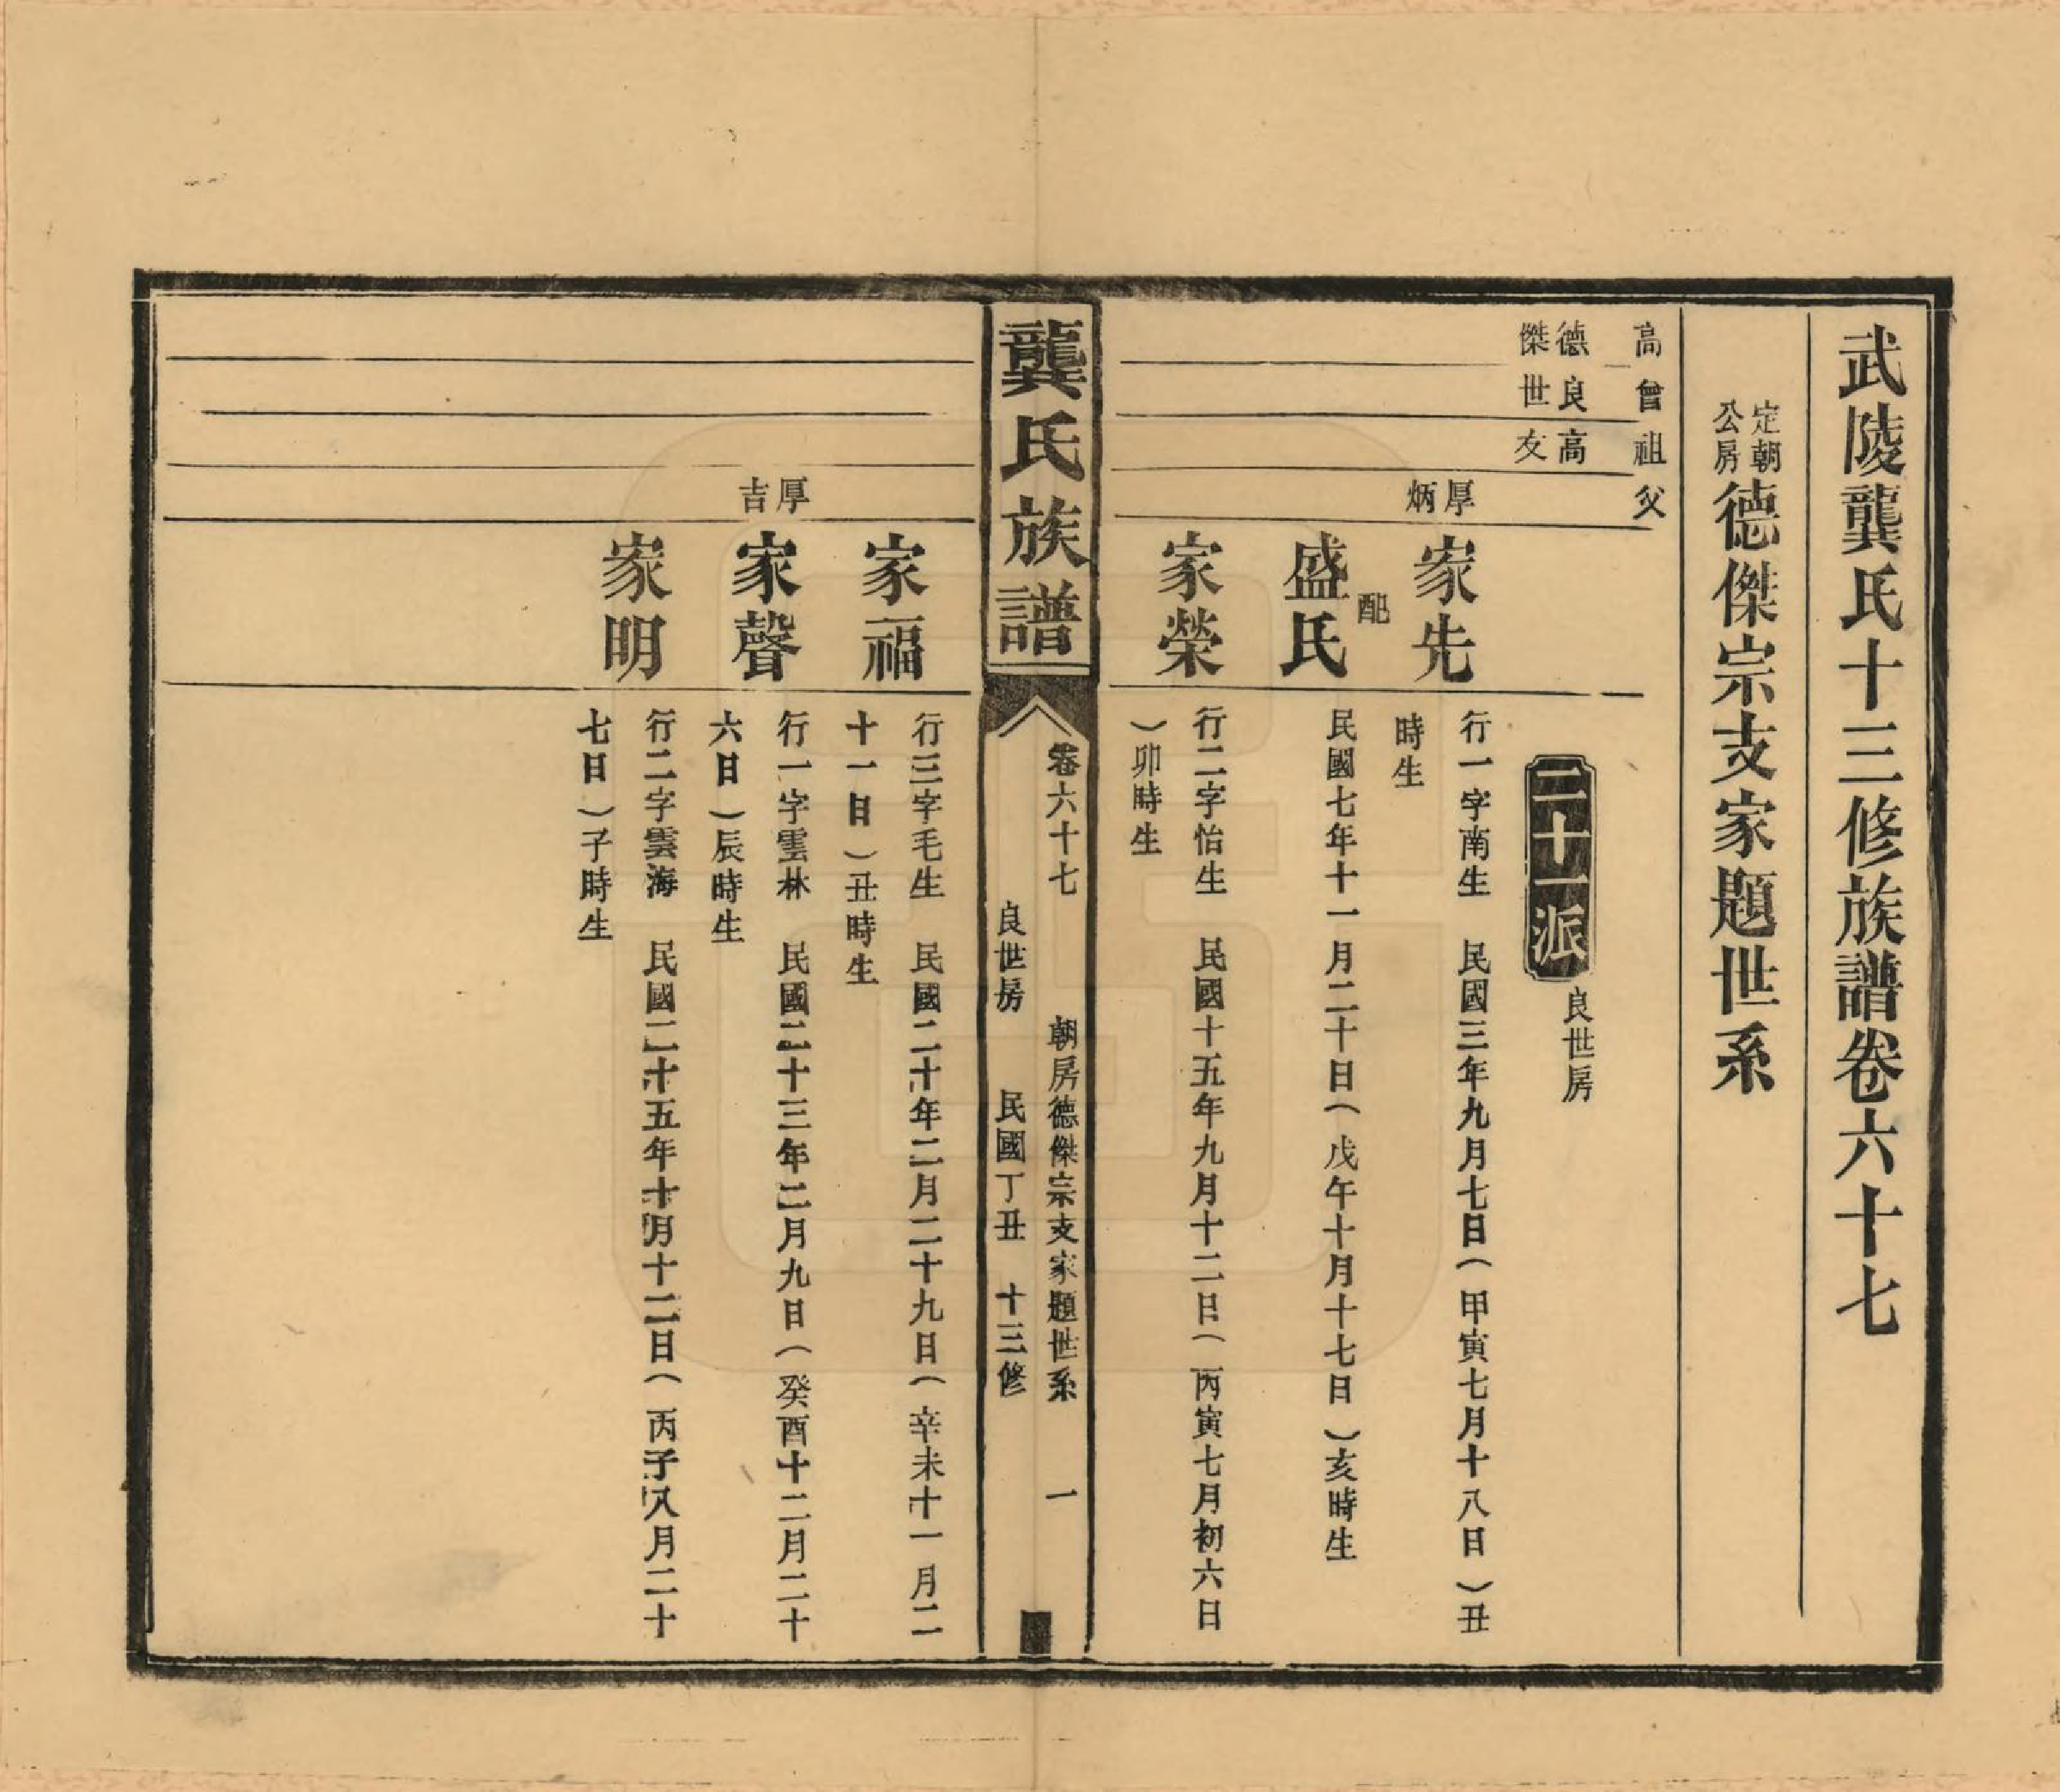 武陵龔氏十三修族譜卷六十七
定朝公房德傑宗支家題世系
高曾祖父
德傑
良世
高友
二十一派
良世房
厚炳
家先
行一字南生 民國三年九月七日(甲寅七月十八日)丑
時生
配
盛氏
民國七年十一月二十日(戊午十月十七日)亥時生
家榮
行二字怡生 民國十五年九月十二日(丙寅七月初六日
)卯時生
龔氏族譜
卷六十七 朝房德傑宗支家題世系 一
良世房 民國丁丑 十三修
家福
行三字毛生 民國二十年二月二十九日(辛未十一月二
十一日)丑時生
厚吉
家聲
行一字雲林 民國二十三年二月九日(癸酉十二月二十
六日)辰時生
家明
行二字雲海 民國二十五年十月十二日(丙子八月二十
七日)子時生